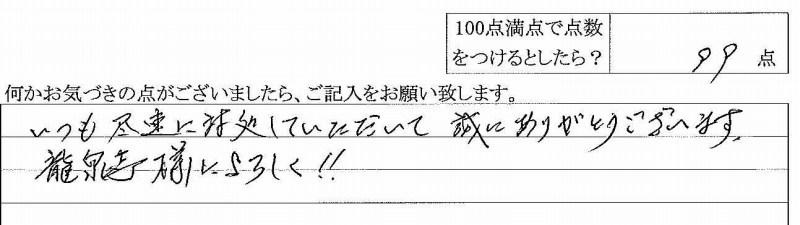 100点満点で点数
をつけるとしたら？ 99 点
何かお気づきの点がございましたら、ご記入をお願い致します。
いつも尽速に対処していただいて 誠にありがとうございます。
龍泉寺様によろしく!!